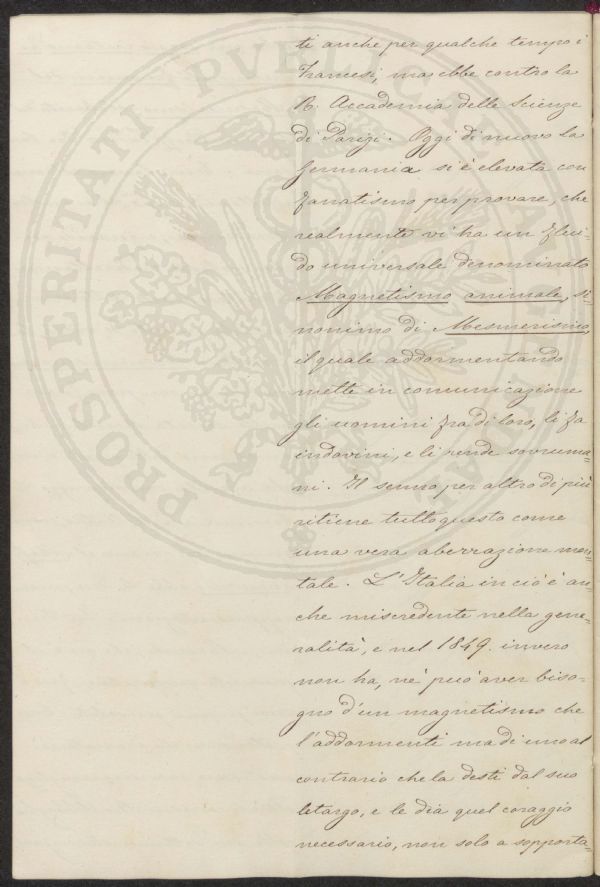 ti anche per qualche tempo i
Francesi, ma ebbe contro la
R. Accademia delle Scienze
di Parigi. Oggi di nuovo la
Germania si è elevata con
fanatismo per provare, che
realmente vi ha un flui=
do universale denominato
Magnetismo animale, si=
nonimo di Mesmerismo,
il quale addormentando
mette in comunicazione
gli uomini fra di loro, li fa
indovini, e li rende sovruma=
ni. Il senno per altro di più
ritiene tutto questo come
una vera aberrazione men=
tale. L'Italia in ciò è an=
che miscredente nella gene=
ralità, e nel 1849. invero
non ha, nè può aver biso=
gno d'un magnetismo che
l'addormenti ma di uno al
contrario che la desti dal suo
letargo, e le dia quel coraggio
necessario, non solo a sopporta=
PROSPERITATI PVBLICAE